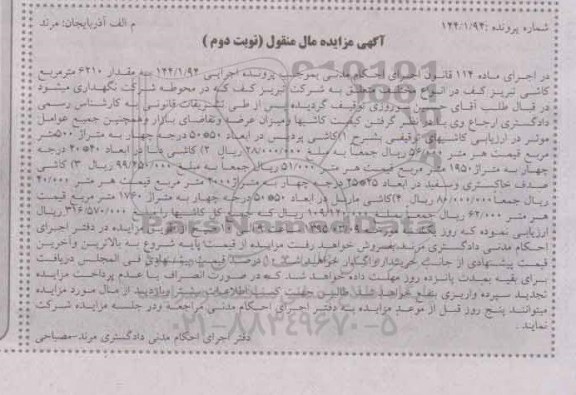 شماره پرونده :۱۴۴/۱/۹۴ م.الف آذربایجان: مرند
آگهی مزایده مال منقول (نوبت دوم )
در اجرای ماده ۱۱۴ قانون اجرای احکام مدنی بموجب پرونده اجرایی ۱۴۴/۱/۹۴ به مقدار ۶۲۱۰ مترمربع
کاشی تبریز کف در انواع مختلف متعلق به شرکت تبریز کف که در محوطه شرکت نگهداری میشود
در قبال طلب آقای حسین پیروزی توقیف گردیده پس از طی تشریفات قانونی به کارشناس رسمی
دادگستری ارجاع وی با در نظر گرفتن کیفیت کاشیها ومیزان عرضه وتقاضای بازار وهمچنین جمیع عوامل
موثر در ارزیابی کاشیهای توقیفی بشرح ۱)کاشی پردیس در ابعاد ۵۰*۵۰ درجه چهار به متراژ ۵۰۰متر
مربع قیمت هر متر ۵۶/۰۰۰ ریال جمعاً به مبلغ ۲۸/۰۰۰/۰۰۰ ریال ۲) کاشی دنا در ابعاد ۴۰*۲۰ درجه
چهار به متراژ ۱۹۵۰ متر مربع قیمت هر متر ۵۱/۰۰۰ ریال جمعاً به مبلغ ۹۹/۴۵۰/۰۰۰ ریال ۳) کاشی
صدف خاکستری وسفید در ابعاد ۲۵*۲۵ درجه چهار به متراژ ۲۰۰۰ متر مربع قیمت هر متر ۴۰/۰۰۰
ریال جمعا ۸۰/۰۰۰/۰۰۰ ریال ۴)کاشی ماربل در ابعاد ۵۰*۵۰ درجه چهار به متراژ ۱۷۶۰ متر مربع قیمت
هر متر ۶۲/۰۰۰ ریال جمعاً بمبلغ ۱۰۹/۱۲۰/۰۰۰ ریال که جمع کل کاشیها بمبلغ ۳۱۶/۵۷۰/۰۰۰ ریال
ارزیابی نموده که روز مزایده در دفتر اجرای
احکام مدنی دادگستری مرند بفروش خواهد رفت مزایده از قیمت پایه شروع به بالاترین وآخرین
قیمت پیشنهادی از جانب خریدار واگذار خواهد شد ۱۰ درصد قیمت پیشنهادی فی المجلس دریافت
برای بقیه بمدت پانزده روز مهلت داده خواهد شد که در صورت انصراف یا عدم پرداخت مزایده
تجدید سپرده واریزی بنفع خواهد شد طالبین جهت کسب اطلاعات بیشتر وبازدید از مال مورد مزایده
میتوانند پنج روز قبل از موعد مزایده به دفتر اجرای احکام مدنی مراجعه ودر جلسه مزایده شرکت
نمایند .
دفتر اجرای احکام مدنی دادگستری مرند-مصباحی
ParsNamadData
۰۲۱-۸۸۳۴۹۶۷۰-۵